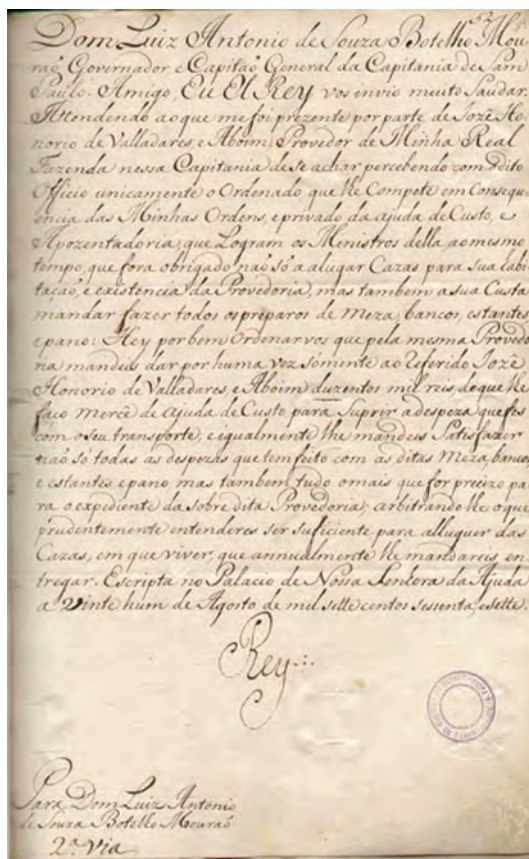 62
Dom Luiz Antonio de Souza Botelho Mou-
raõ, Governador, e Capitaõ General da Capitania de Sam
Paulo. Amigo, Eu El Rey vos invio muito Saudar.
Attendendo ao que me foi prezente por parte de Jozê Ho-
norio de Valladares, e Aboim, Provedor de Minha Real
Fazenda nessa Capitania de se achar percebendo com o dito
Officio unicamente o Ordenado que lhe Compete em Consequ-
ência das Minhas Ordens, e privado da ajuda de Custo, e
Apozentadoria, que Logram os Ministros della, ao mesmo
tempo, que fora obrigado naõ só a alugar Cazas para sua habi-
taçaõ, e existencia da Provedoria, mas tambem a sua Custa
mandar fazer todos os préparos de Meza, bancos, estantes
e pano: Hey por bem Ordenarvos que pela mesma Provedo-
ria mandeis dar por huma vez sómente ao Referido Jozê
Honorio de Valladares, e Aboim duzentos mil reis, de que lhe
faço mercê de ajuda de Custo para Suprir a despeza que fes
com o seu transporte, e igualmente lhe mandeis Satisfazer
naõ só todas as despezas que tem feito com as ditas Meza, bancos,
e estantes e pano, mas tambem tudo o mais que for precizo pa-
ra o expediente da sobre dita Provedoria; arbitrando lhe o que
prudentemente entenderes ser suficiente para alluguer das
Cazas, em que viver, que annualmente lhe mandareis en-
tregar. Escripta no Palacio de Nossa Senhora da Ajuda
a vinte hum de Agosto de mil sette centos sessenta, e sette.
Rey
Para Dom Luiz Antonio
de Souza Botelho Mouraõ
2ª via